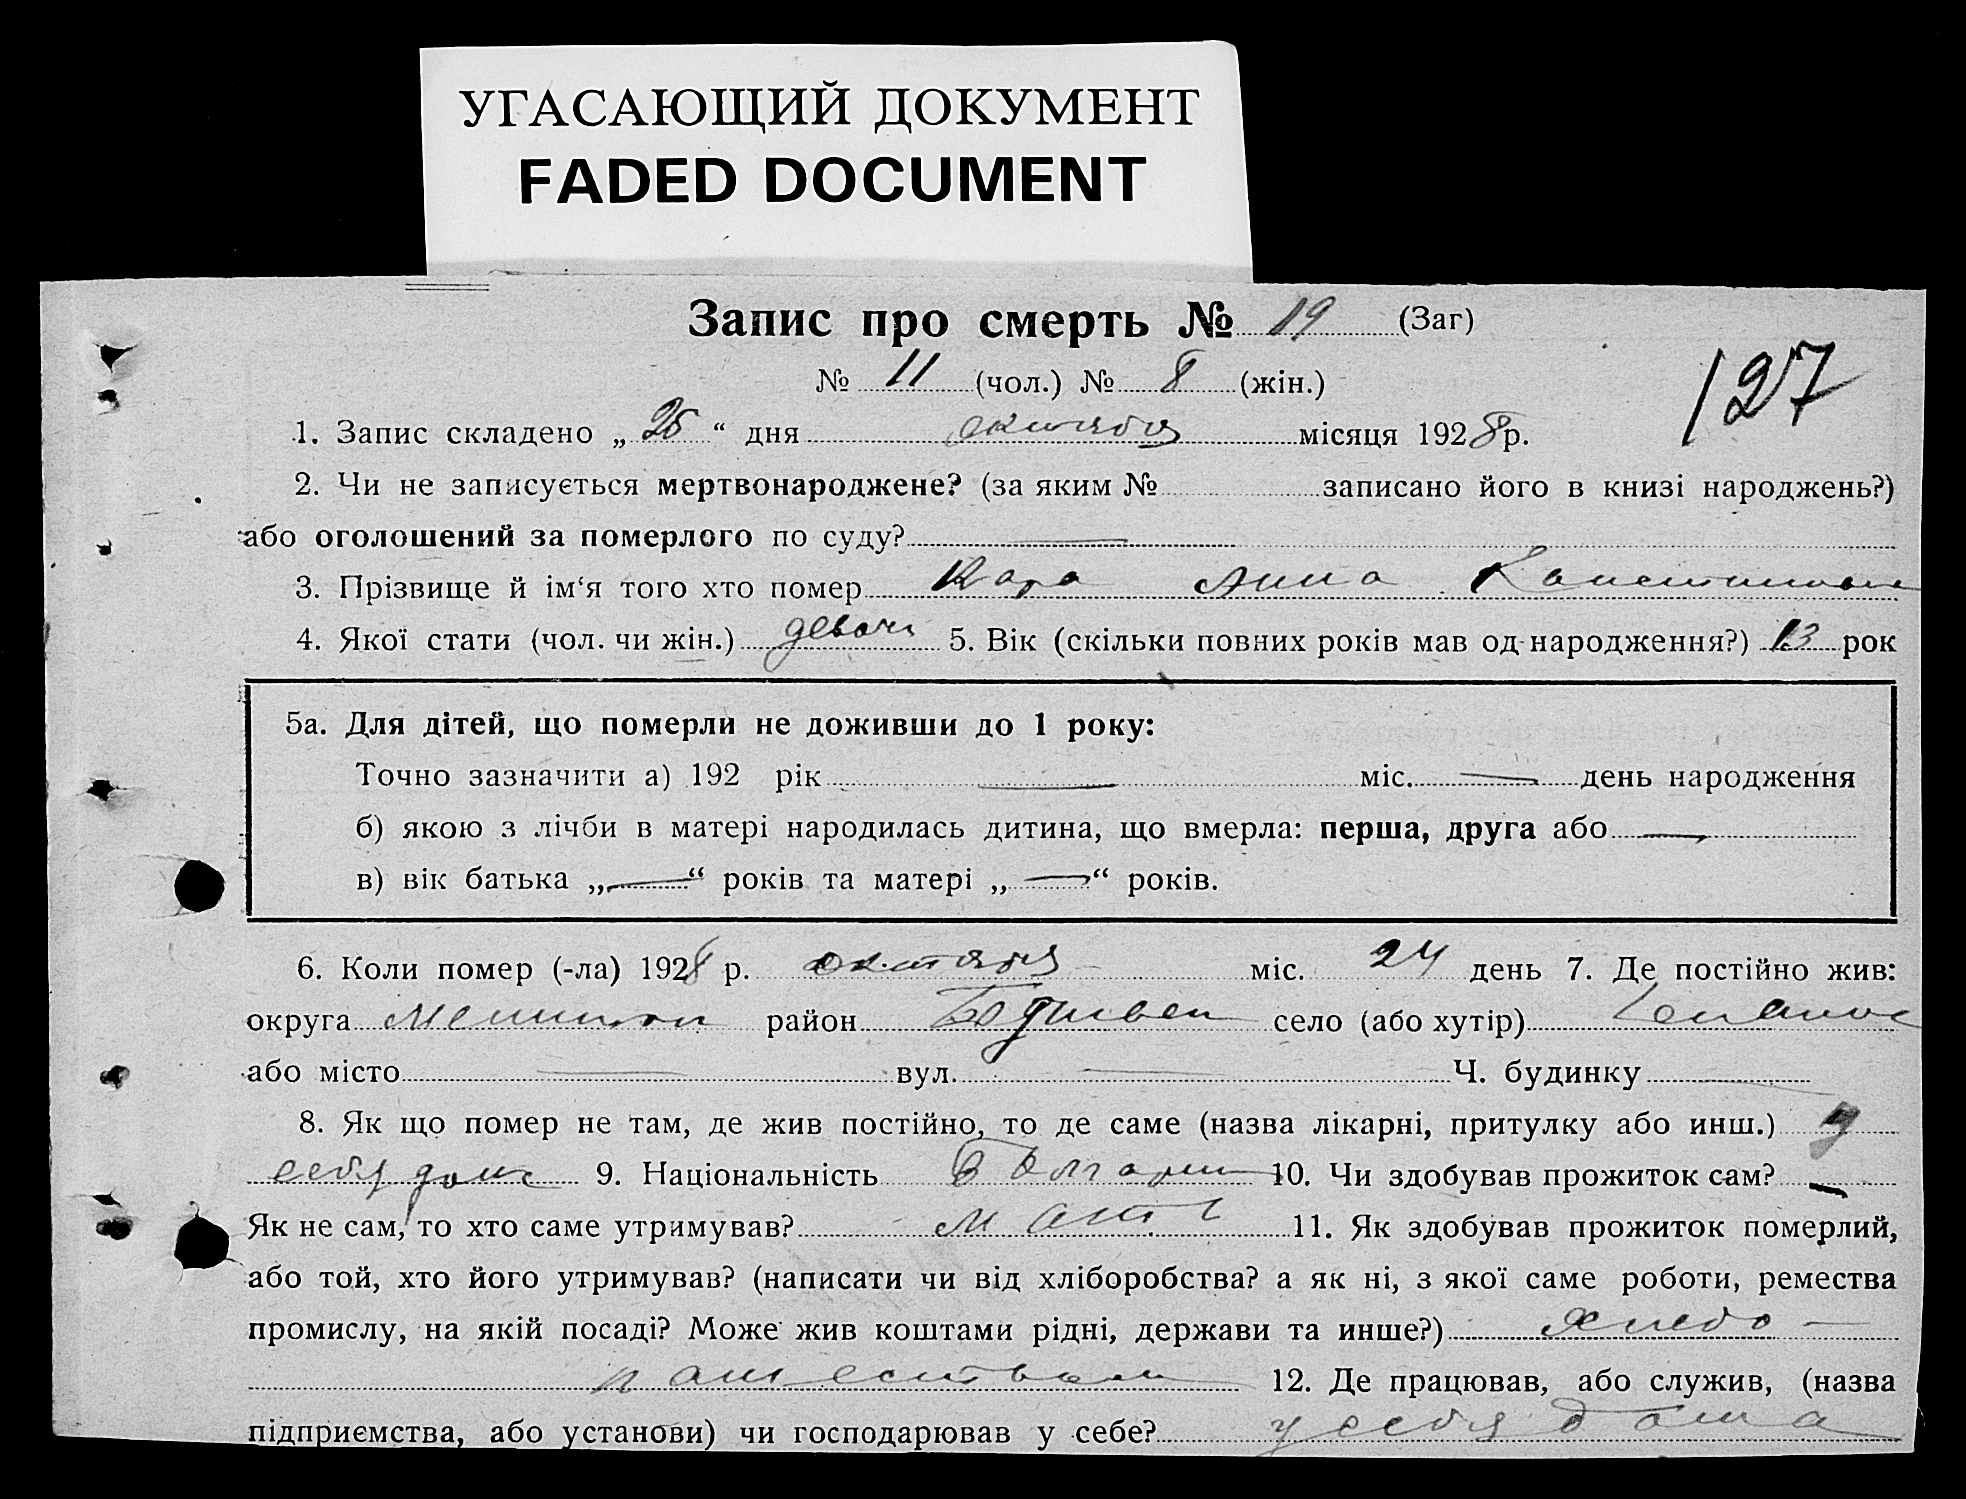 УГАСАЮЩИЙ ДОКУМЕНТ
FADED DOCUMENT
Запис про смерть № 19 (Заг)
№ 11 (чол.) № 8 (жін.)
127
1. Запис складено „ “ дня октября місяця 1928 р.
2. Чи не записується мертвонароджене? (за яким № записано його в книзі народжень?)
або оголошений за померлого по суду? —
3. Прізвище й ім‘я того хто помер Кара Анна
4. Якої стати (чол. чи жін.) 5. Вік (скільки повних років мав од народження?) 13 рок
5а. Для дітей, що померли не доживши до 1 року:
Точно зазначити а) 192 рік — міс. — день народження
б) якою з лічби в матері народилась дитина, що вмерла: перша, друга або —
в) вік батька „—“ років та матері „—“ років.
6. Коли помер (-ла) 1928 р. октября міс. 24 день 7. Де постійно жив:
округа район село (або хутір)
або місто — вул. — Ч. будинку —
8. Як що помер не там, де жив постійно, то де саме (назва лікарні, притулку або инш.) у
себя доме 9. Національність 10. Чи здобував прожиток сам? —
Як не сам, то хто саме утримував? мать 11. Як здобував прожиток померлий,
або той, хто його утримував? (написати чи від хліборобства? а як ні, з якої саме роботи, ремества
промислу, на якій посаді? Може жив коштами рідні, держави та инше?) хлебо-
пашеством 12. Де працював, або служив, (назва
підприємства, або установи) чи господарював у себе? у себя дома